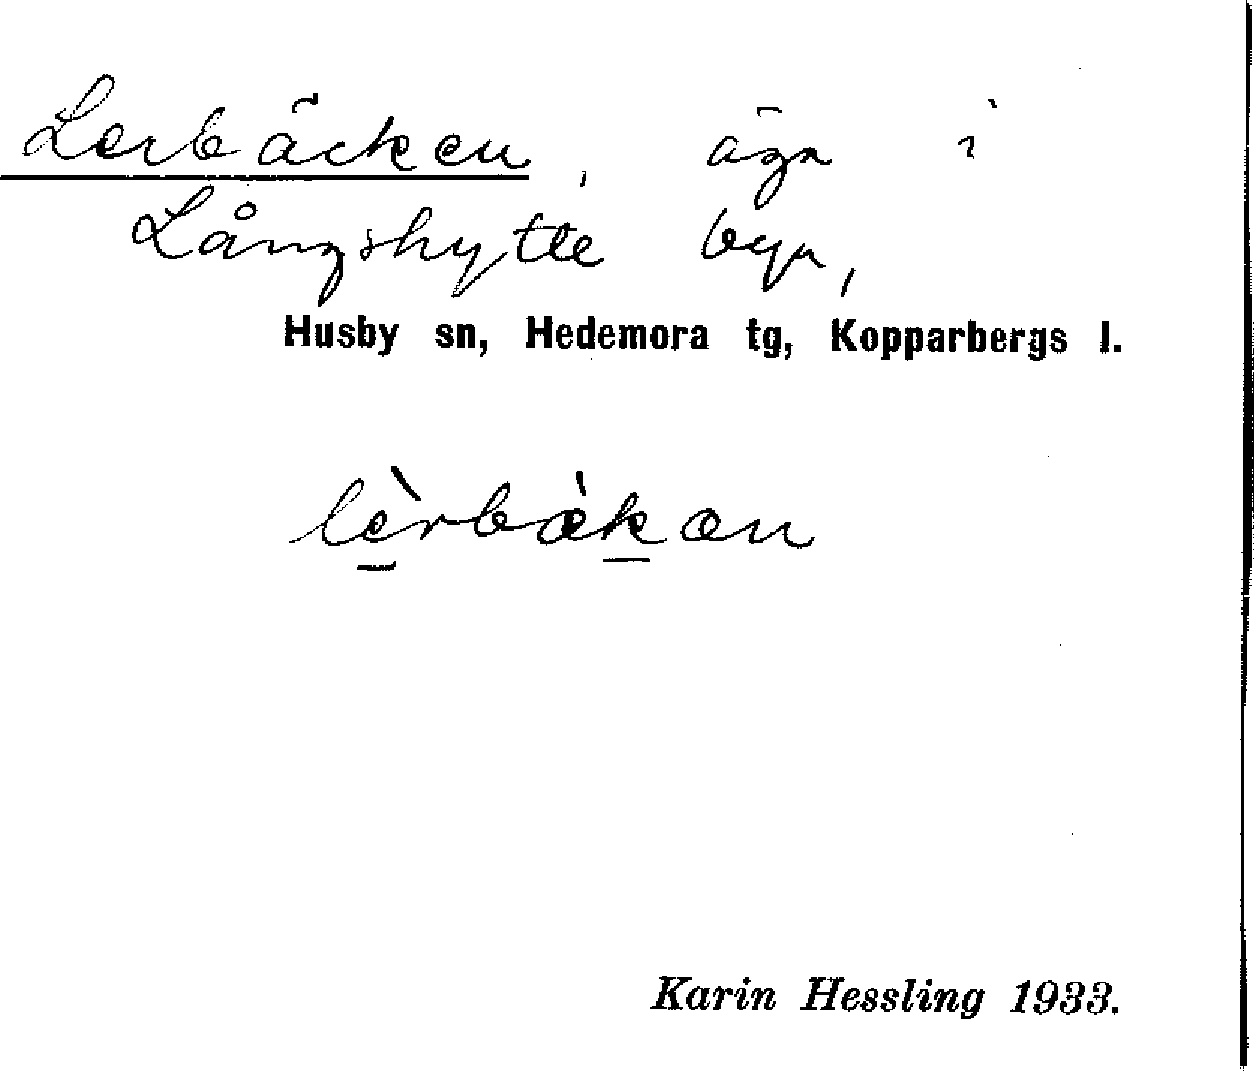 Lerbäcken, äga i
Långshytte byn,
Husby sn, Hedemora tg, Kopparbergs l.
lèrbækan
Karin Hessling 1933.